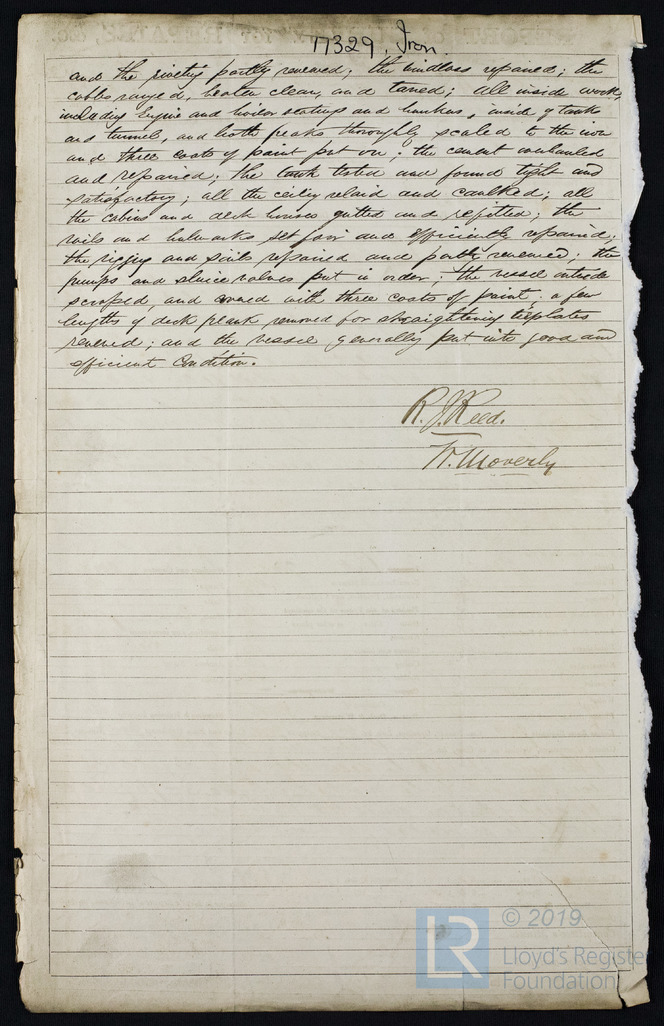 17329 Iron.
and the riveting partly renewed; the windlass repaired; the
cables ranged, beaten clean, and tarred; all inside work,
including Engine and boiler statups and bunkers, inside of tanks
and tunnel, and both peaks thoroughly scaled to the iron
and three coats of paint put on; the cement overhauled
and repaired; the tank tested and found tight and
satisfactory; all the ceiling relaid and caulked; all
the cabins and deck houses gutted and refitted; the
rails and bulwarks set fair and efficiently repaired;
the rigging and sails repaired and partly renewed; the
pumps and sluice valves put in order; the vessel outside
scraped, and coated with three coats of paint; a few
lengths of deck plank removed for straightening tieplates
renewed; and the vessel generally put into good and
efficient condition.
R. J. Reed.
W. Moverly
LR
© 2019
Lloyd's Register
Foundation